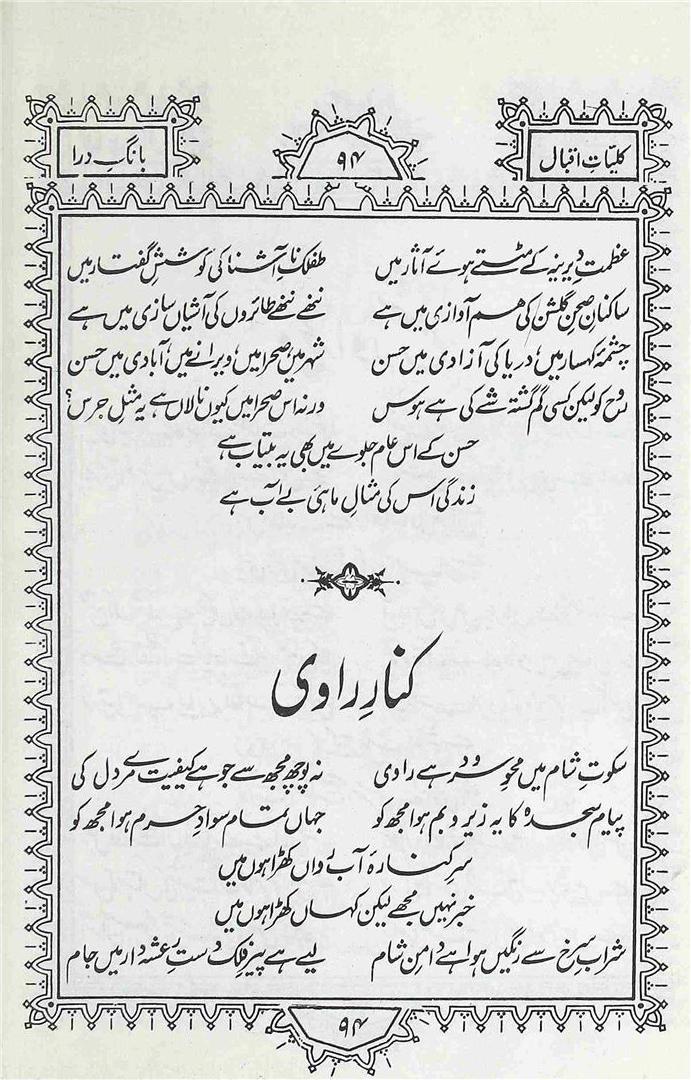 کلیاتِ اقبال
۹۴
بانگِ درا
عظمتِ دیرینہ کے مٹتے ہوئے آثار میں طفلکِ ناآشنا کی کوششِ گفتار میں
ساکنانِ صحنِ گلشن کی ہم آوازی میں ہے ننھے ننھے طائروں کی آشیاں سازی میں ہے
چشمۂ کہسار میں، دریا کی آزادی میں حسن شہر میں، صحرا میں، ویرانے میں، آبادی میں حسن
روح کو لیکن کسی گم گشتہ شے کی ہے ہوس ورنہ اس صحرا میں کیوں نالاں ہے یہ مثلِ جرس؟
حسن کے اس عام جلوے میں بھی یہ بیتاب ہے
زندگی اس کی مثالِ ماہیِ بے آب ہے
کنارِ راوی
سکوتِ شام میں محوِ سرود ہے راوی نہ پوچھ مجھ سے جو ہے کیفیت مرے دل کی
پیام سجدہ کا یہ زیر و بم ہوا مجھ کو جہاں تمام سوادِ حرم ہوا مجھ کو
سرِ کنارۂ آبِ رواں کھڑا ہوں میں
خبر نہیں مجھے لیکن کہاں کھڑا ہوں میں
شرابِ سرخ سے رنگیں ہوا ہے دامنِ شام لیے ہے پیرِ فلک دستِ رعشہ دار میں جام
۹۴